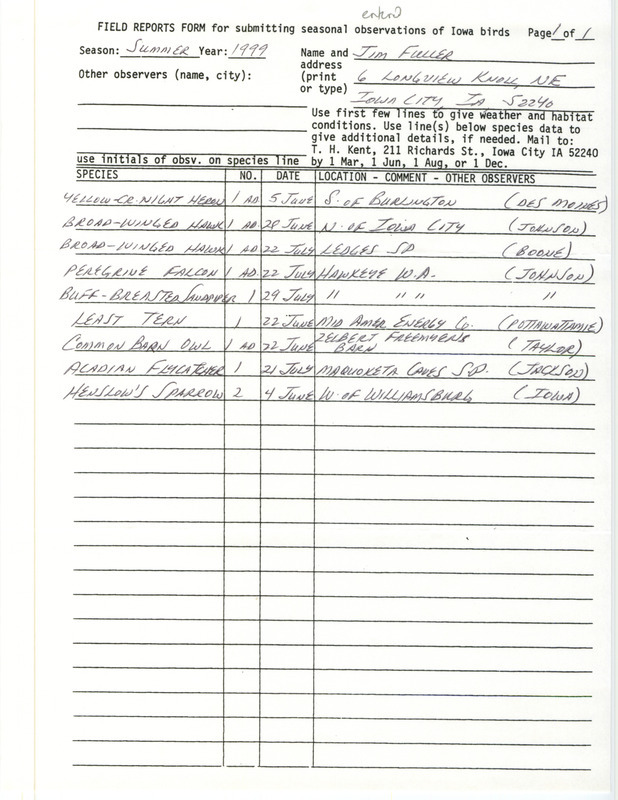 entered
FIELD REPORTS FORM for submitting seasonal observations of Iowa birds Page 1 of 1
Season: SUMMER Year: 1999
Name and address (print or type) JIM FULLER
6 LONGVIEW KNOLL, NE
IOWA CITY, IA 52240
Other observers (name, city):
Use first few lines to give weather and habitat
conditions. Use line(s) below species data to
give additional details, if needed. Mail to:
T. H. Kent, 211 Richards St., Iowa City IA 52240
by 1 Mar, 1 Jun, 1 Aug, or 1 Dec.
use initials of obsv. on species line
SPECIES NO. DATE LOCATION - COMMENT - OTHER OBSERVERS
YELLOW-CR. NIGHT HERON 1 AD. 5 JUNE S. OF BURLINGTON (DES MOINES)
BROAD-WINGED HAWK 1 AD 28 JUNE N. OF IOWA CITY (JOHNSON)
BROAD-WINGED HAWK 1 AD 22 JULY LEDGES SP (BOONE)
PEREGRINE FALCON 1 AD 22 JULY HAWKEYE W.A. (JOHNSON)
BUFF-BREASTED SANDPIPER 1 29 JULY " " " "
LEAST TERN 1 22 JUNE MID AMER ENERGY CO. (POTTAWATTAMIE)
COMMON BARN OWL 1 AD 22 JUNE ZELBERT FREEMYERS BARN (TAYLOR)
ACADIAN FLYCATCHER 1 21 JULY MAQUOKETA CAVES S.P. (JACKSON)
HENSLOW'S SPARROW 2 4 JUNE W. OF WILLIAMSBURG (IOWA)